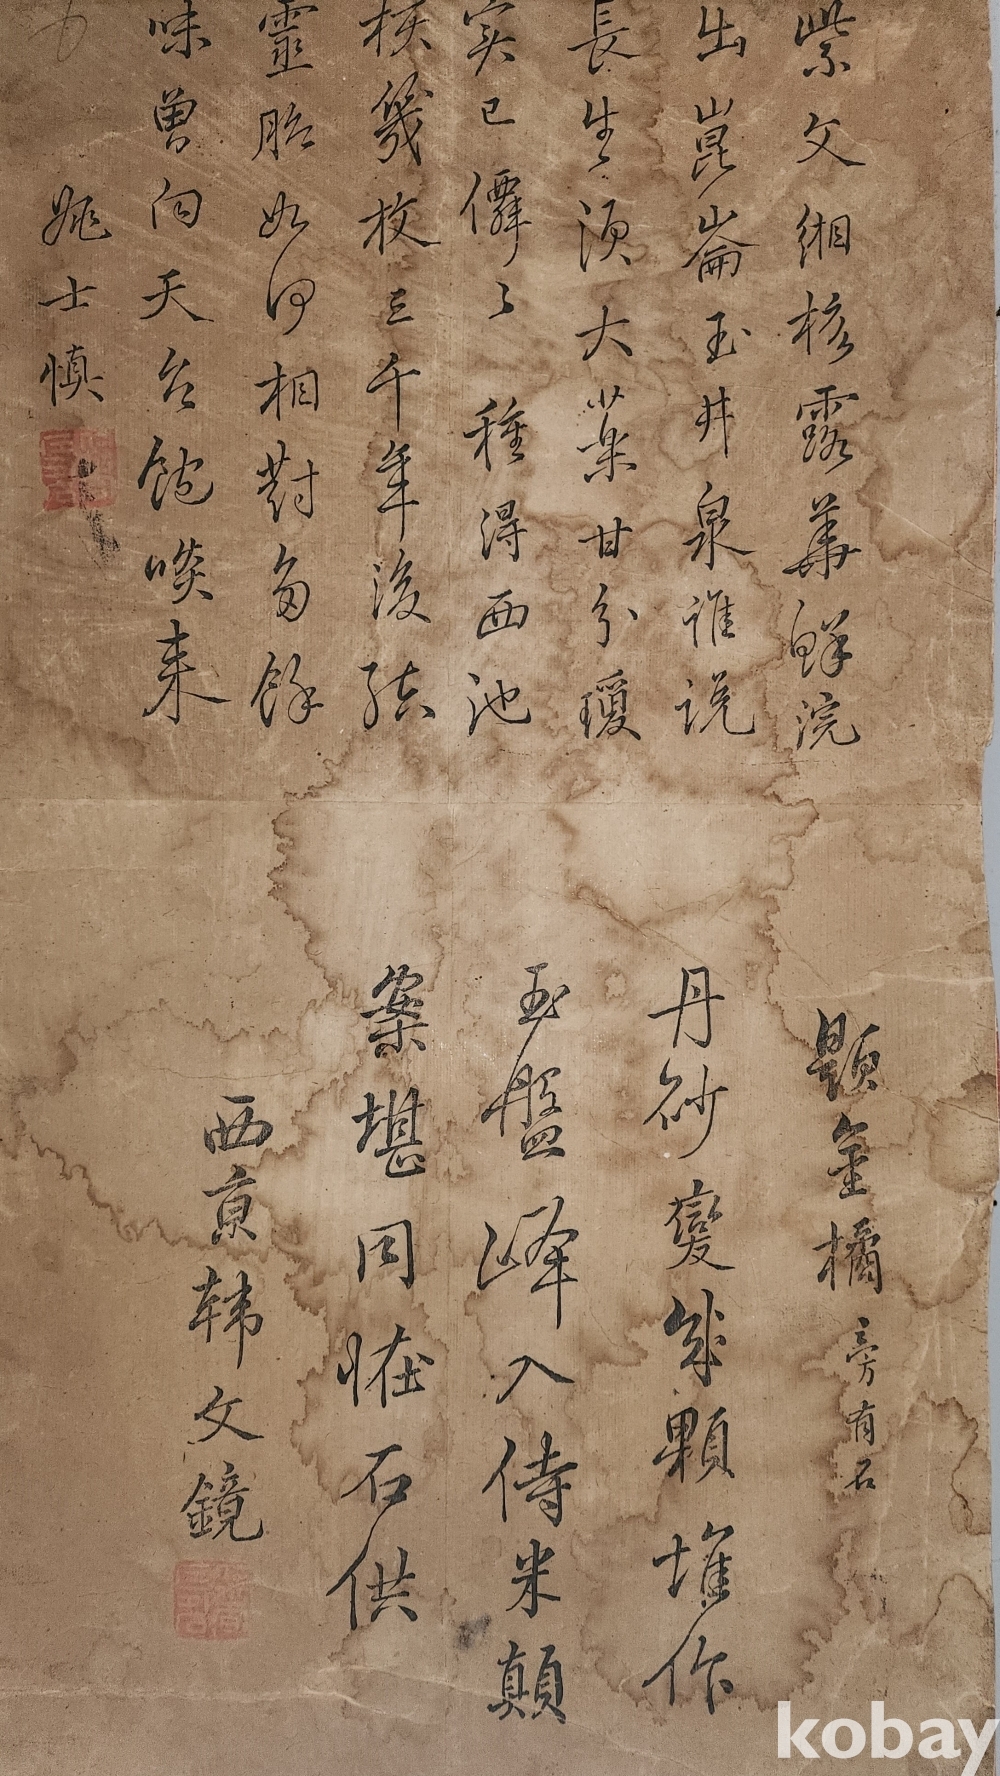 紫文緗核露華鮮浣
出崑崙玉井泉誰說
長生須大藥甘分瓊
实已僊〻種得西池
核幾枚三千年後結
靈胎如何相對多餘
味曾向天台飽啖来
姚士慎
題金橘旁有石
丹砂變幾顆堆作
玉盤峰入侍米顛
案堪同怪石供
西京韩文鏡
kobay